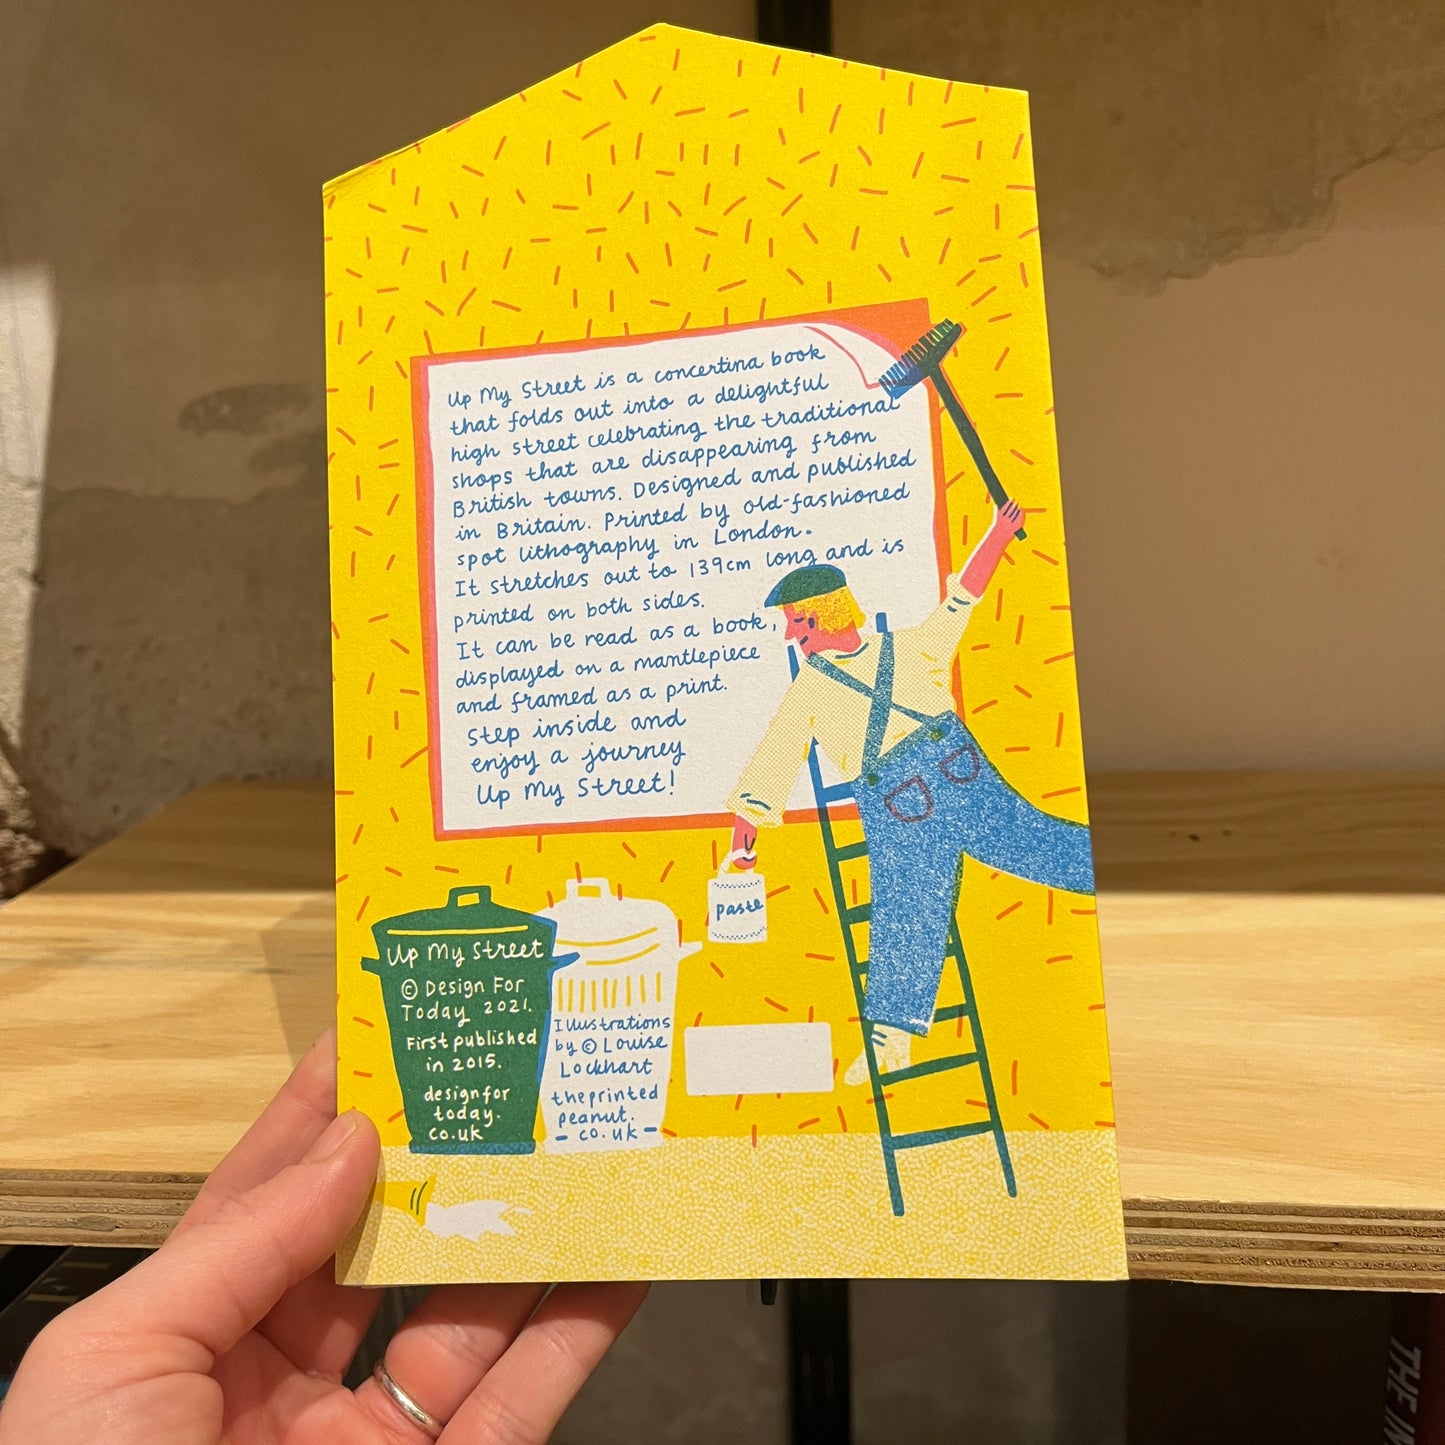 Up My Street is a concertina book
that folds out into a delightful
high street celebrating the traditional
shops that are disappearing from
British towns. Designed and published
in Britain. Printed by old-fashioned
spot lithography in London.
It stretches out to 139cm long and is
printed on both sides.
It can be read as a book,
displayed on a mantlepiece
and framed as a print.
Step inside and
enjoy a journey
Up My Street!
paste
Up My Street
© Design For
Today 2021.
First published
in 2015.
designfor
today.
co.uk
Illustrations
by © Louise
Lockhart
theprinted
peanut.
- co.uk -
THE IN